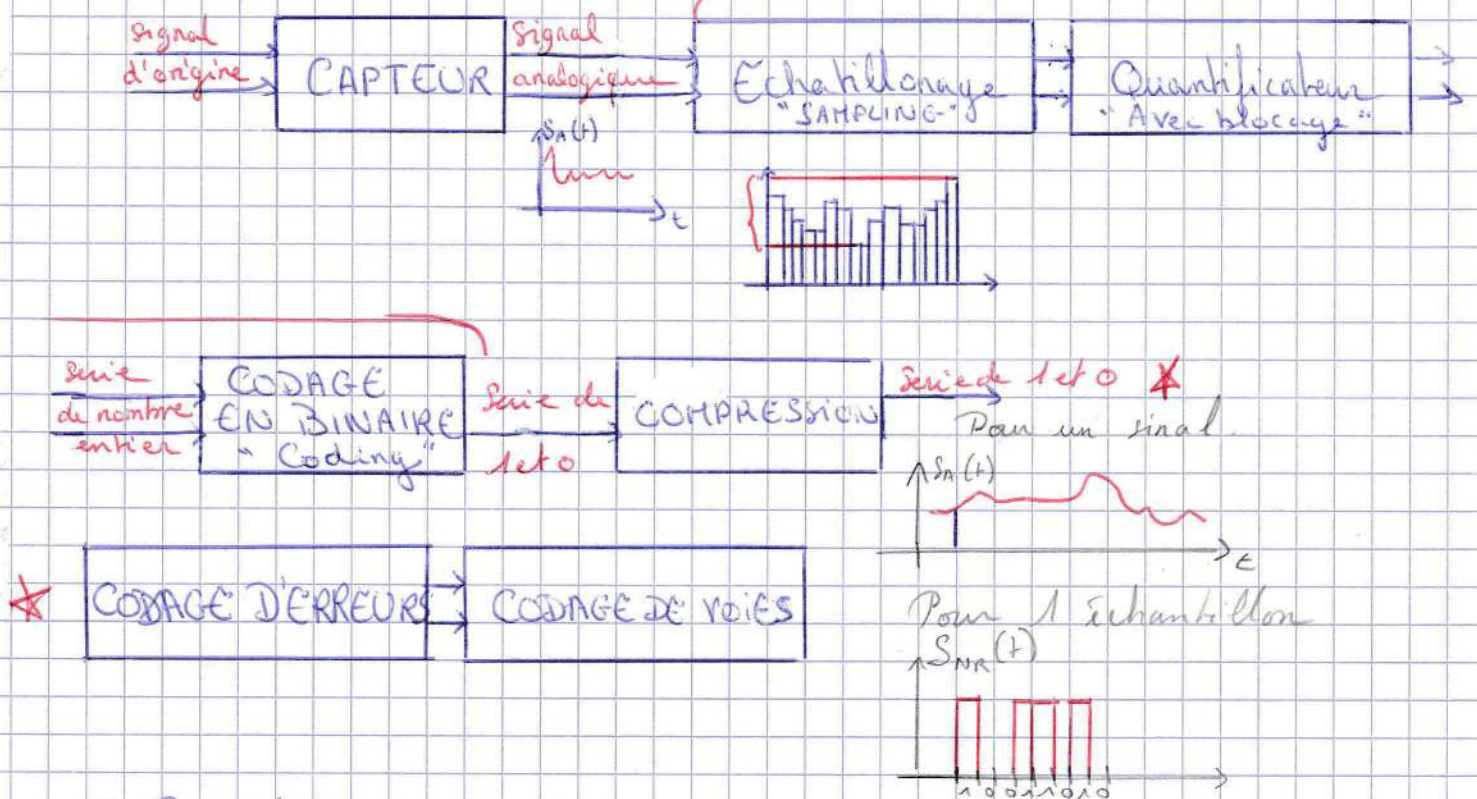 signal
d'origine
CAPTEUR
signal
analogique
Echatillonage
"SAMPLING"
Quantificateur
"Avec blocage"
SA(t)
t
serie
de nombre
entier
CODAGE
EN BINAIRE
"Coding"
Serie de
1 et 0
COMPRESSION
Serie de 1 et 0
Pour un sinal
SA(t)
t
CODAGE D'ERREURS
CODAGE DE VOIES
Pour 1 échantillon
SNR(t)
1 0 0 1 1 0 1 0